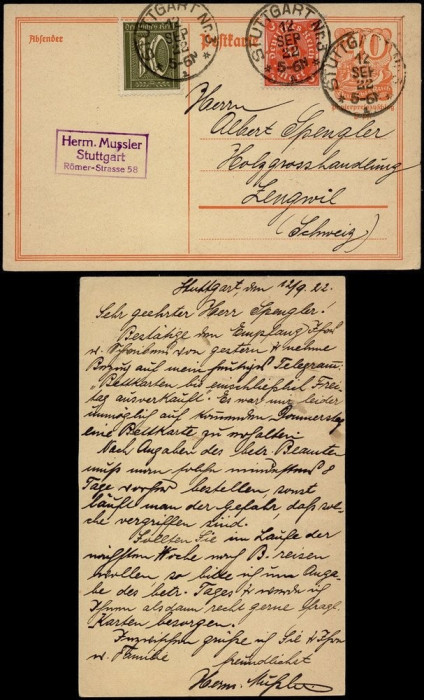 Absender
Postkarte
Deutsches Reich
STUTTGART Nr. 3
12 SEP 22
5-6N
STUTTGART Nr. 3
12
SEP
22
5-6N
STUTTGART
12
SEP
22
5-6N
Herrn
Albert Spengler
Holzgrosshandlung
Lengwil
(Schweiz)
Herm. Mussler
Stuttgart
Römer-Strasse 58
Stuttgart, den 12/9. 22.
Sehr geehrter Herr Spengler!
Bestätige den Empfang Ihres
w. Schreibens von gestern & nehme
Bezug auf mein heutiges Telegramm:
"Bettkarten bis einschließlich Frei-
tag ausverkauft." Es war mir leider
unmöglich auf kommenden Donnerstag
eine Bettkarte zu erhalten.
Nach Angaben des betr. Beamten
muß man solche mindestens 8
Tage vorher bestellen, sonst
läufe man der Gefahr, daß sol-
che vergriffen sind.
Sollten Sie im Laufe der
nächsten Woche nach B. reisen
wollen, so bitte ich um Anga-
be des betr. Tages & werde ich
Ihnen alsdann recht gerne fragl.
Karten besorgen.
Inzwischen grüße ich Sie & Ihre
w. Familie freundlichst
Herm. Mußler